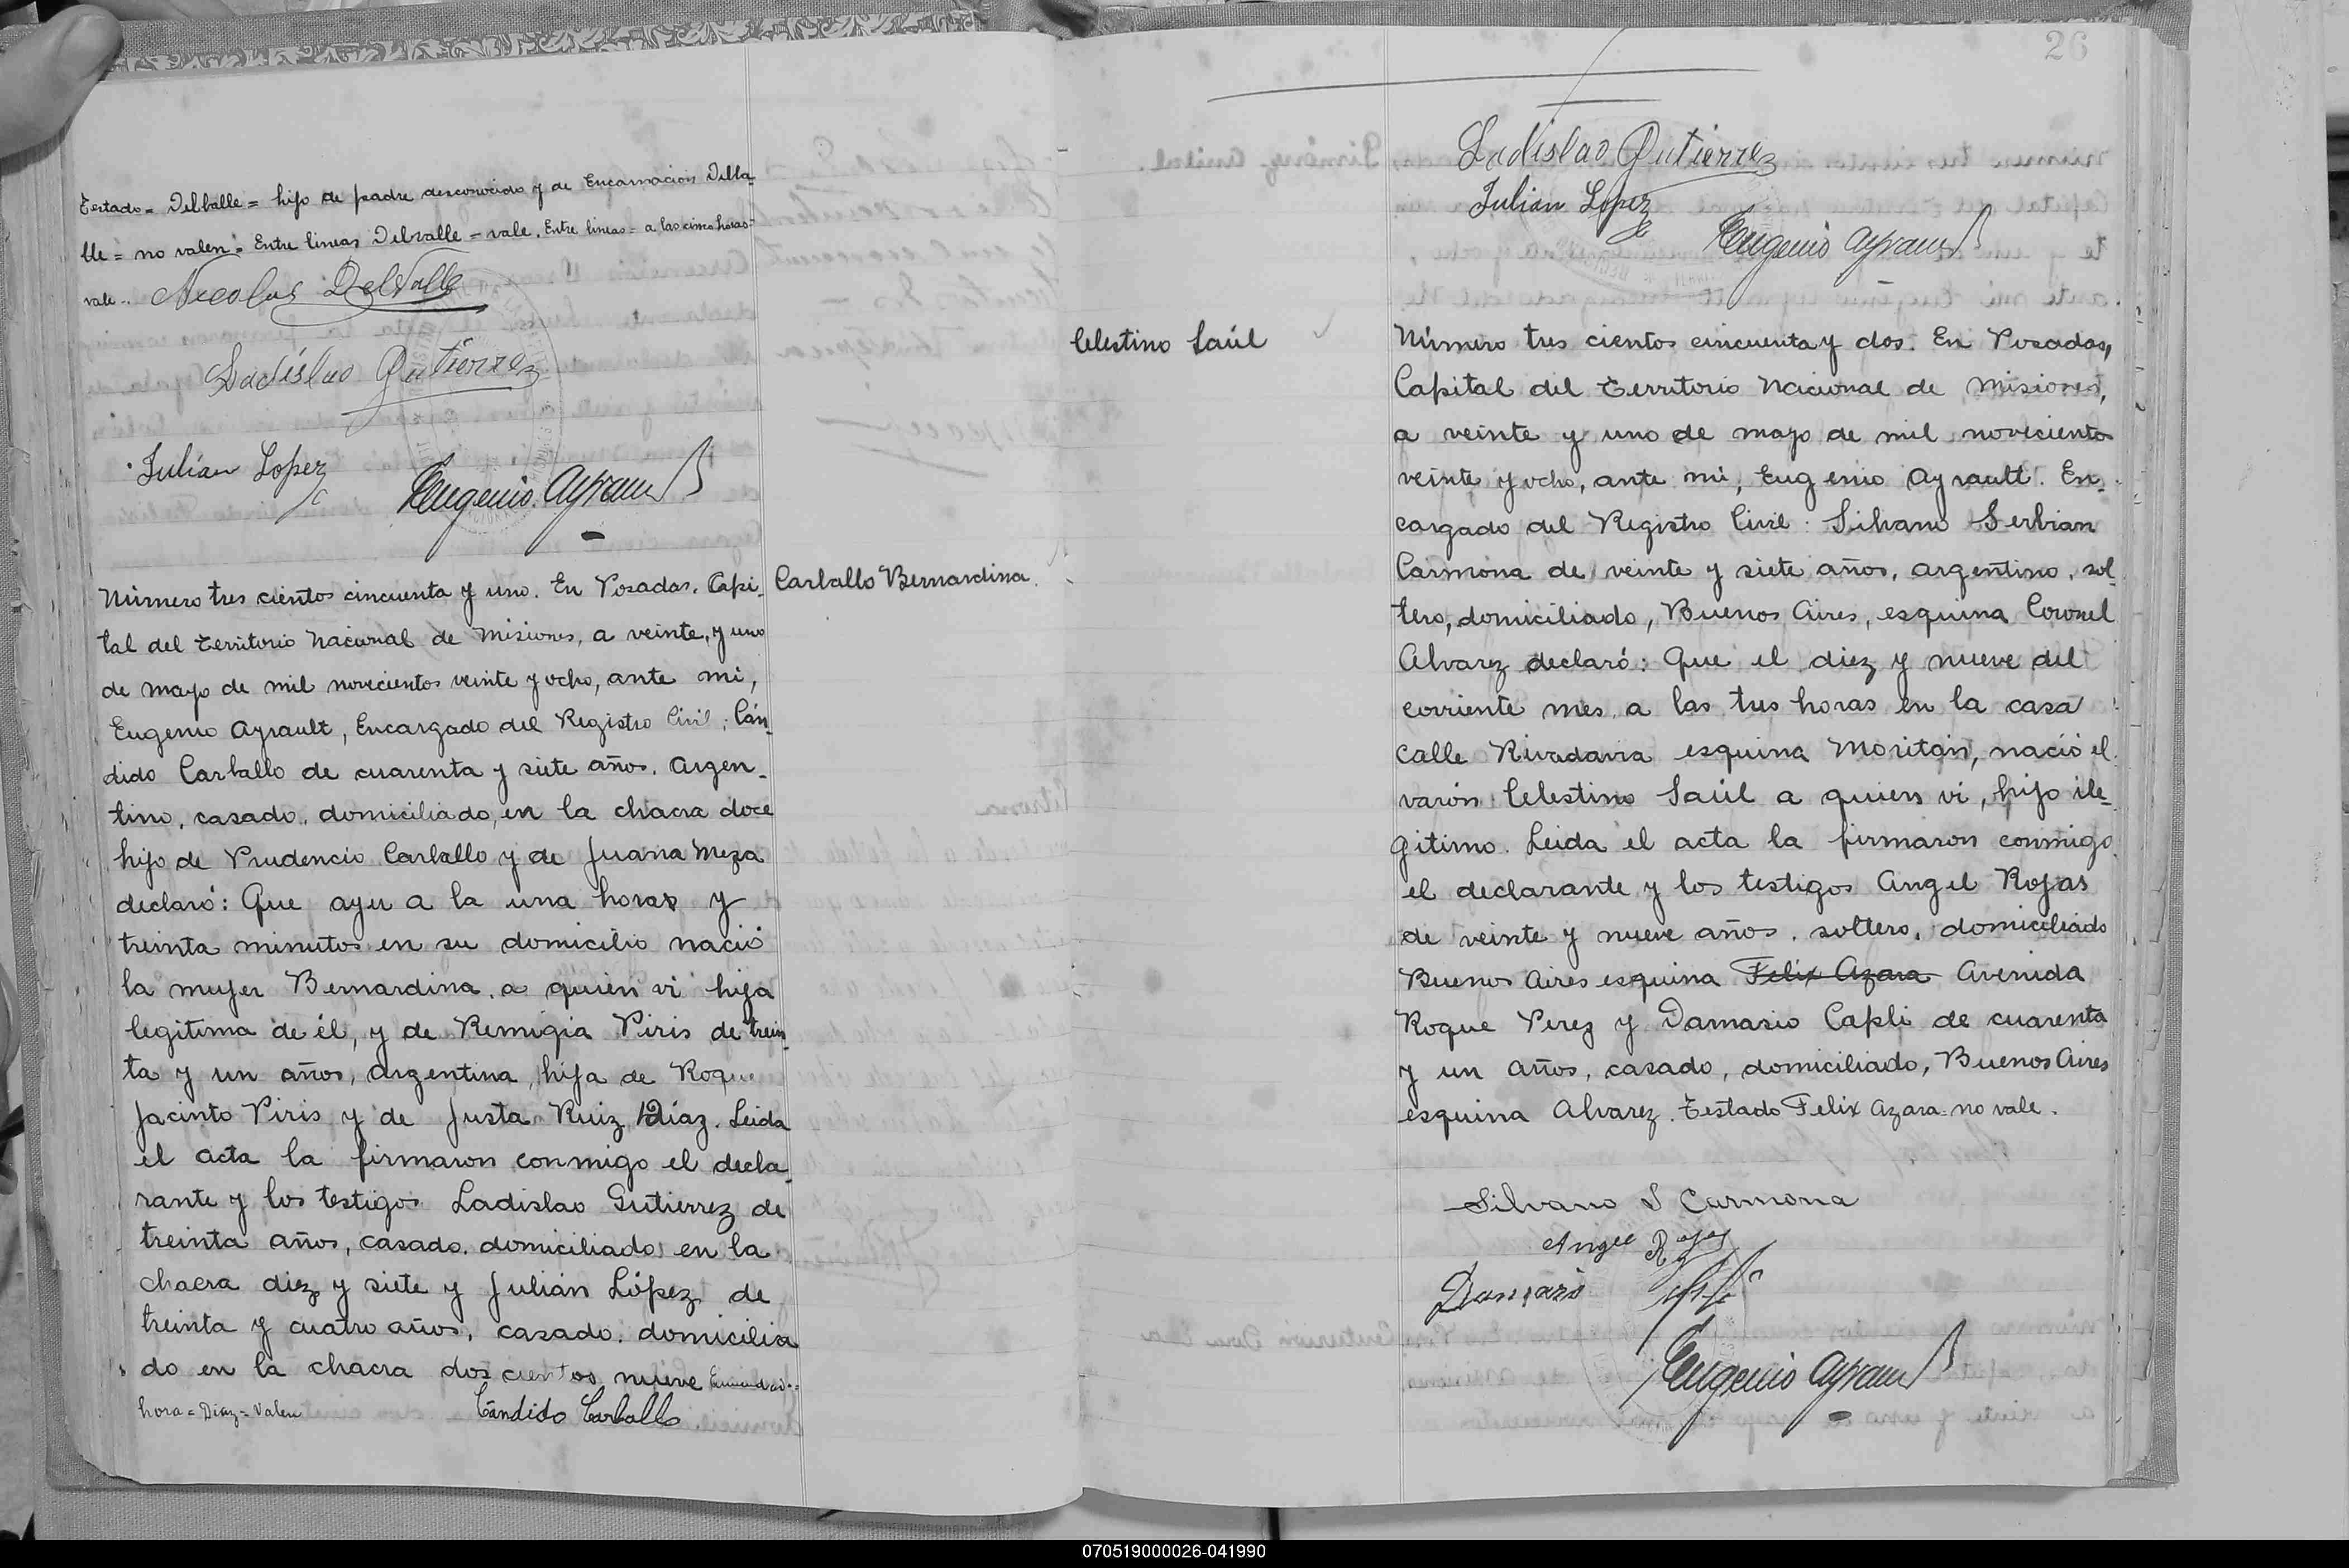 Testado = Delballe = hijo de padre desconocido y de Encarnacion Della-
lle = no valen = Entre lineas Delvalle = vale. Entre lineas = a las cinco horas =
vale..
Nicolas DelValle
Ladislao Gutierrez
Julian Lopez
Eugenio Ayrault
Número tres cientos cincuenta y uno. En Posadas, Capi-
Carballo Bernardina.
tal del Territorio Nacional de Misiones, a veinte, y uno
de mayo de mil novecientos veinte y ocho, ante mi,
Eugenio Ayrault, Encargado del Registro Civil; Cán-
dido Carballo de cuarenta y siete años, argen-
tino, casado, domiciliado, en la chacra doce
hijo de Prudencio Carballo y de Juana Meza
declaró: Que ayer a la una horas y
treinta minutos en su domicilio nació
la mujer Bernardina, a quien vi hija
legitima de él, y de Remigia Piris de trein-
ta y un años, argentina, hija de Roque
Jacinto Piris y de Justa Ruiz Díaz. Leida
el acta la firmaron conmigo el decla-
rante y los testigos Ladislao Gutierrez de
treinta años, casado, domiciliado en la
chacra diez y siete y Julián López de
treinta y cuatro años, casado, domicilia
do en la chacra dos cientos nueve Enmendado..
hora = Diaz = Valen
Cándido Carballo
26
Ladislao Gutierrez
Julian Lopez
Eugenio Ayrault
Celestino Saúl
Número tres cientos cincuenta y dos. En Posadas,
Capital del Territorio Nacional de Misiones,
a veinte y uno de mayo de mil novecientos
veinte y ocho, ante mi, Eugenio Ayrault. En-
cargado del Registro Civil: Silvano Serbian
Carmona de veinte y siete años, argentino, sol
tero, domiciliado, Buenos Aires, esquina Coronel
Alvarez declaró: Que el diez y nueve del
corriente mes a las tres horas en la casa
calle Rivadavia esquina Moritán, nació el
varón Celestino Saúl a quien vi, hijo ile-
gitimo. Leida el acta la firmaron conmigo
el declarante y los testigos Angel Rojas
de veinte y nueve años, soltero, domiciliado
Buenos Aires esquina Felix Azara Avenida
Roque Perez y Damasio Capli de cuarenta
y un años, casado, domiciliado, Buenos Aires
esquina Alvarez. Testado Felix Azara no vale.
Silvano S Carmona
Angel Rojas
Damasio
Eugenio Ayrault
070519000026-041990